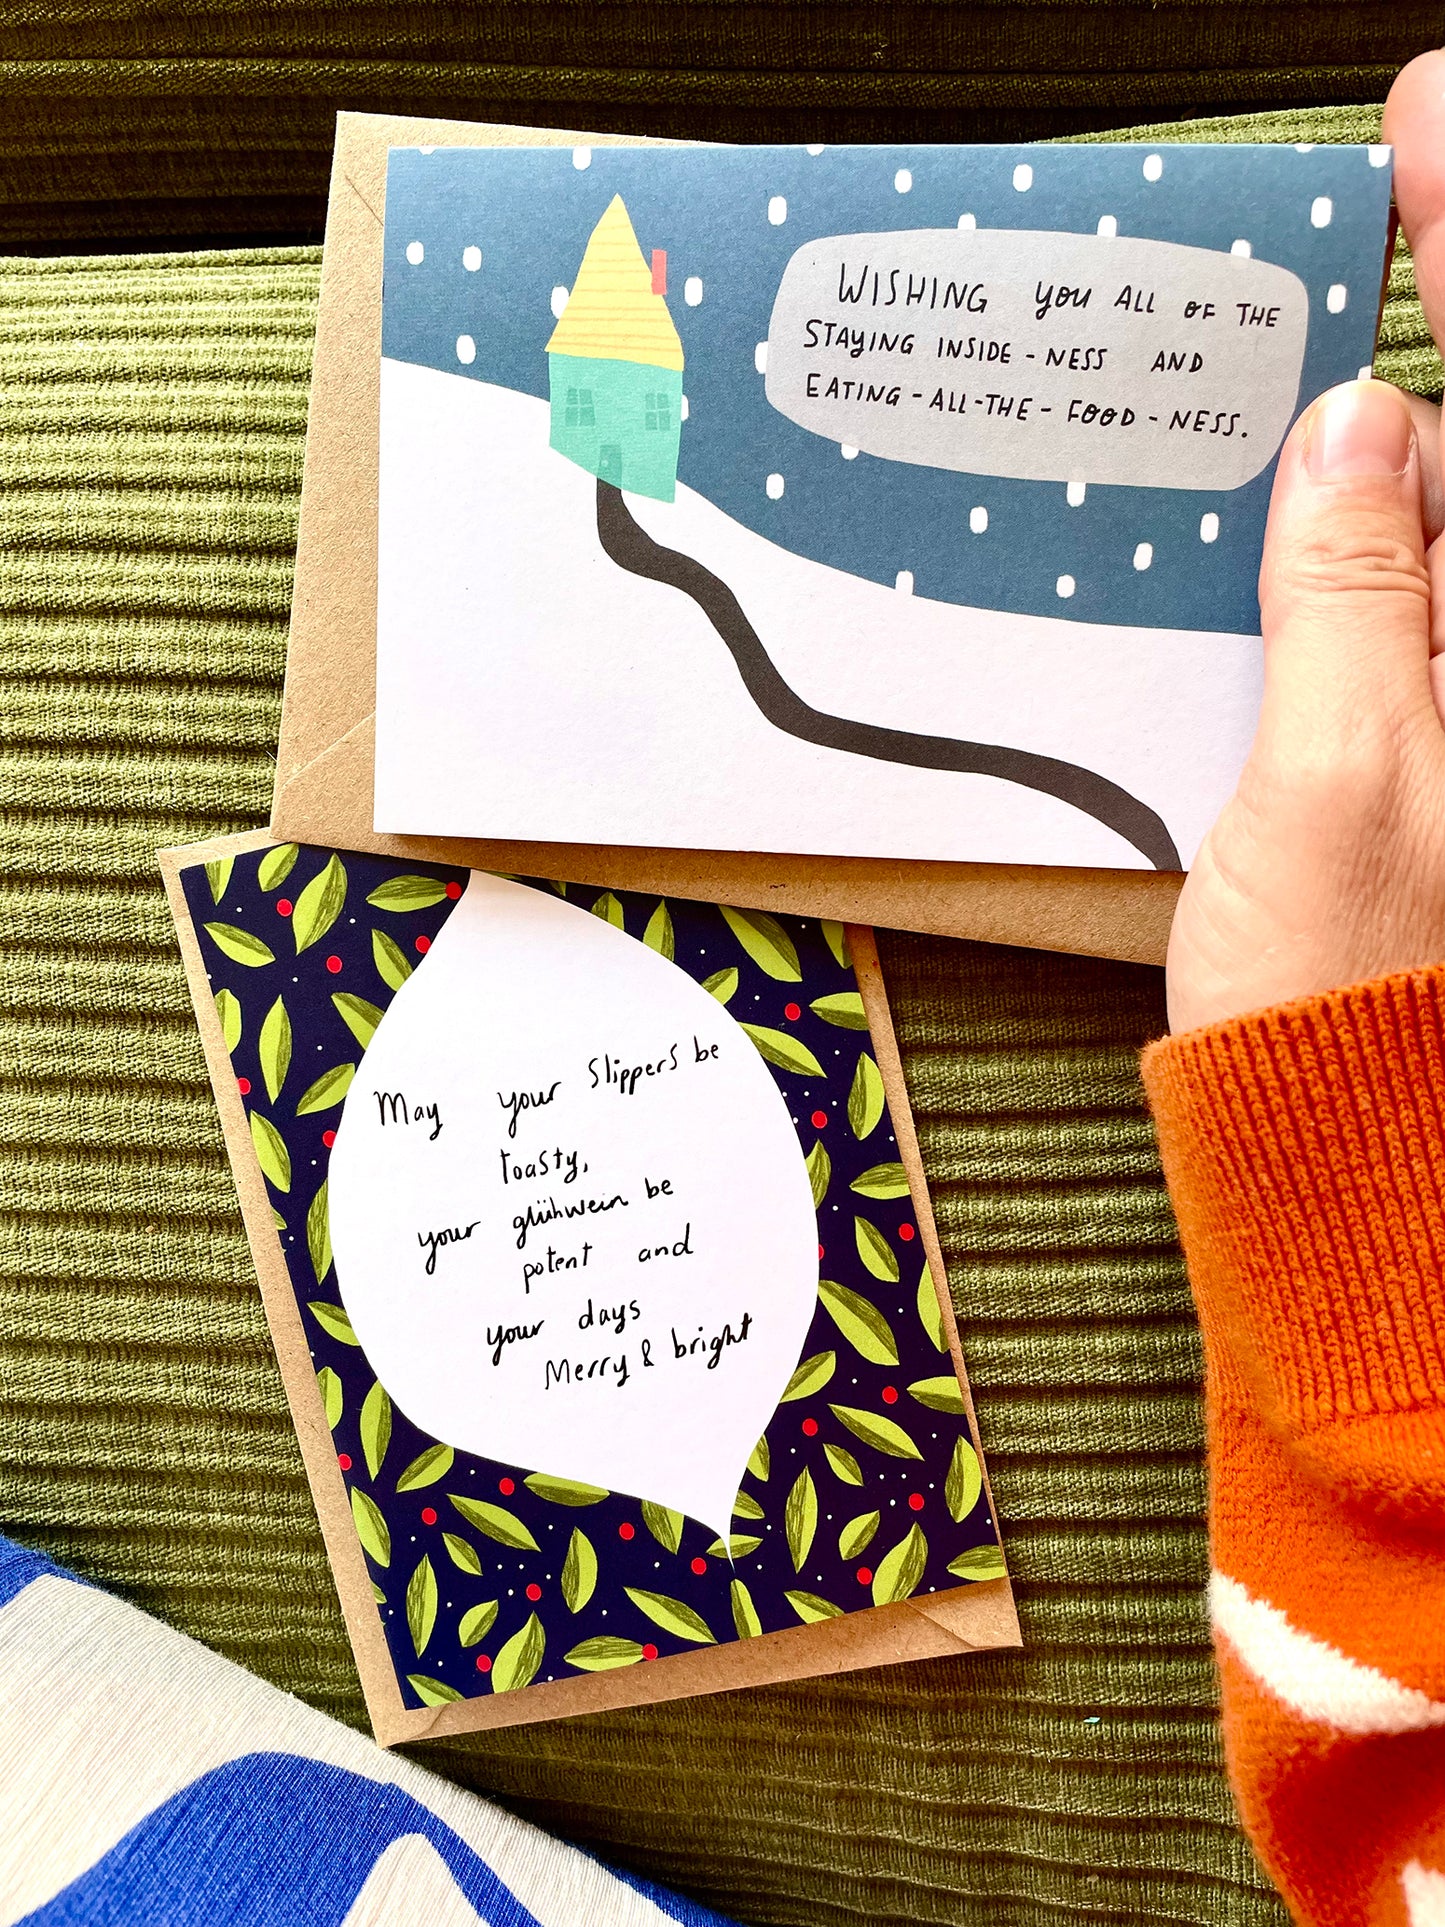 WISHING YOU ALL OF THE
STAYING INSIDE - NESS AND
EATING - ALL - THE - FOOD - NESS.
May your slippers be
toasty,
your glühwein be
potent and
your days
Merry & bright